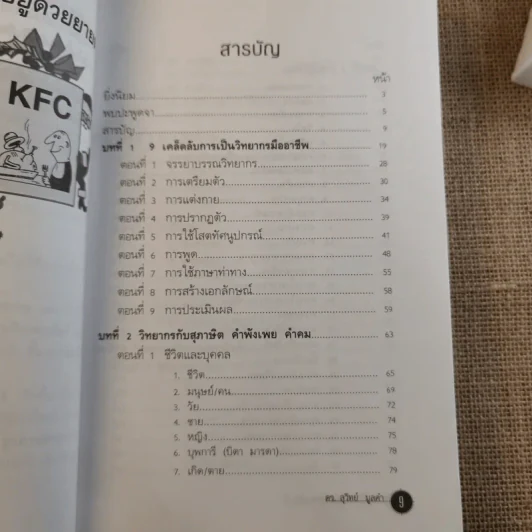 สารบัญ
หน้า
ยิ่งนิยม 3
พบปะพูดจา 5
สารบัญ 9
บทที่ 1 9 เคล็ดลับการเป็นวิทยากรมืออาชีพ 19
ตอนที่ 1 จรรยาบรรณวิทยากร 28
ตอนที่ 2 การเตรียมตัว 30
ตอนที่ 3 การแต่งกาย 34
ตอนที่ 4 การปรากฏตัว 39
ตอนที่ 5 การใช้โสตทัศนูปกรณ์ 41
ตอนที่ 6 การพูด 48
ตอนที่ 7 การใช้ภาษาท่าทาง 55
ตอนที่ 8 การสร้างเอกลักษณ์ 58
ตอนที่ 9 การประเมินผล 59
บทที่ 2 วิทยากรกับสุภาษิต คำพังเพย คำคม 63
ตอนที่ 1 ชีวิตและบุคคล
1. ชีวิต 65
2. มนุษย์/คน 69
3. วัย 72
4. ชาย 74
5. หญิง 75
6. บุพการี (บิดา มารดา) 78
7. เกิด/ตาย 79
ดร. สุวิทย์ มูลคำ 9
KFC